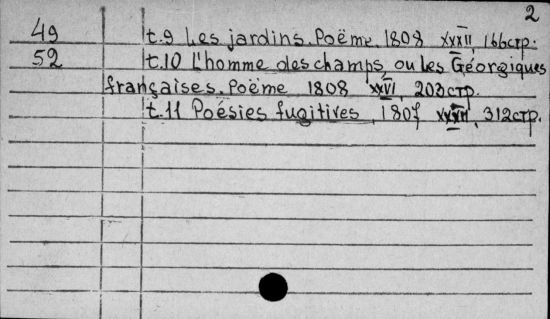 2
49 t.9 Les jardins. Poëme. 1808 XXXII, 166стр.
52 t.10 L'homme des champs ou Les Géorgiques
françaises. Poëme 1808 XXVI, 203стр.
t.11 Poésies fugitives, 1807 312стр.